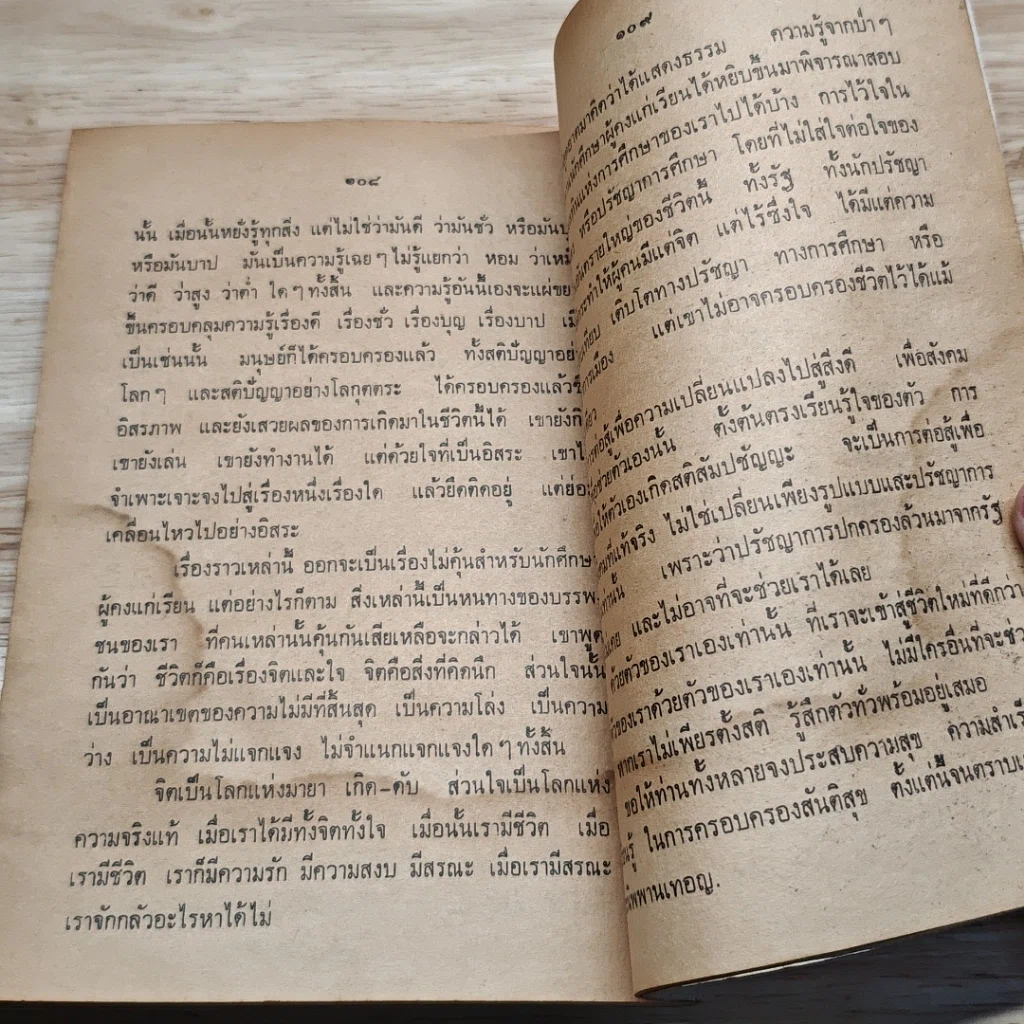 ๑๐๘
นั้น เมื่อนั้นหยั่งรู้ทุกสิ่ง แต่ไม่ใช่ว่ามันดี ว่ามันชั่ว หรือมันบุ
หรือมันบาป มันเป็นความรู้เฉยๆ ไม่รู้แยกว่า หอม ว่าเหม็
ว่าดี ว่าสูง ว่าต่ำ ใดๆ ทั้งสิ้น และความรู้อันนี้เองจะแผ่ขย
ขึ้นครอบคลุมความรู้เรื่องดี เรื่องชั่ว เรื่องบุญ เรื่องบาป
เป็นเช่นนั้น มนุษย์ก็ได้ครอบครองแล้ว ทั้งสติปัญญาอย่
โลกๆ และสติปัญญาอย่างโลกุตตระ ได้ครอบครองแล้ว
อิสรภาพ และยังเสวยผลของการเกิดมาในชีวิตนี้ได้ เขายัง
เขายังเล่น เขายังทำงานได้ แต่ด้วยใจที่เป็นอิสระ
จำเพาะเจาะจงไปสู่เรื่องหนึ่งเรื่องใด แล้วยึดติดอยู่ แต่ย่อม
เคลื่อนไหวไปอย่างอิสระ
เรื่องราวเหล่านี้ ออกจะเป็นเรื่องไม่คุ้นสำหรับนักศึกษา
ผู้คงแก่เรียน แต่อย่างไรก็ตาม สิ่งเหล่านี้เป็นหนทางของบรรพ
ชนของเรา ที่คนเหล่านั้นคุ้นกันเสียเหลือจะกล่าวได้ เขาพูด
กันว่า ชีวิตก็คือเรื่องจิตและใจ จิตคือสิ่งที่คิดนึก ส่วนใจนั้น
เป็นอาณาเขตของความไม่มีที่สิ้นสุด เป็นความโล่ง เป็นความ
ว่าง เป็นความไม่แจกแจง ไม่จำแนกแจกแจงใดๆ ทั้งสิ้น
จิตเป็นโลกแห่งมายา เกิด-ดับ ส่วนใจเป็นโลกแห่ง
ความจริงแท้ เมื่อเราได้มีทั้งจิตทั้งใจ เมื่อนั้นเรามีชีวิต เมื่อ
เรามีชีวิต เราก็มีความรัก มีความสงบ มีสรณะ เมื่อเรามีสรณะ
เราจักกลัวอะไรหาได้ไม่
๑๐๙
อาตมาคิดว่าได้แสดงธรรม ความรู้จากป่าๆ
นักศึกษาผู้คงแก่เรียนได้หยิบขึ้นมาพิจารณาสอบ
แห่งการศึกษาของเราไปได้บ้าง การไว้ใจใน
หรือปรัชญาการศึกษา โดยที่ไม่ใส่ใจต่อใจของ
อันตรายใหญ่ของชีวิตนี้ ทั้งรัฐ ทั้งนักปรัชญา
กระทำให้ผู้คนมีแต่จิต แต่ไร้ซึ่งใจ ได้มีแต่ความ
เติบโตทางปรัชญา ทางการศึกษา หรือ
การเมือง แต่เขาไม่อาจครอบครองชีวิตไว้ได้แม้
ต่อสู้เพื่อความเปลี่ยนแปลงไปสู่สิ่งดี เพื่อสังคม
ช่วยตัวเองนั้น ตั้งต้นตรงเรียนรู้ใจของตัว การ
ให้ตัวเองเกิดสติสัมปชัญญะ จะเป็นการต่อสู้เพื่อ
ที่แท้จริง ไม่ใช่เปลี่ยนเพียงรูปแบบและปรัชญาการ
เท่านั้น เพราะว่าปรัชญาการปกครองล้วนมาจากรัฐ
และไม่อาจที่จะช่วยเราได้เลย
ด้วยตัวของเราเองเท่านั้น ที่เราจะเข้าสู่ชีวิตใหม่ที่ดีกว่า
ของเราด้วยตัวของเราเองเท่านั้น ไม่มีใครอื่นที่จะช่ว
หากเราไม่เพียรตั้งสติ รู้สึกตัวทั่วพร้อมอยู่เสมอ
ขอให้ท่านทั้งหลายจงประสบความสุข ความสำเร็
ในการครอบครองสันติสุข ตั้งแต่นี้จนตราบ
นิพพานเทอญ.